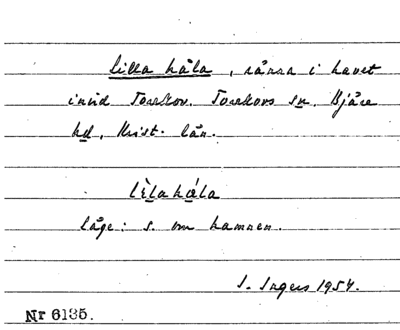 Lilla håla, ränna i havet
invid Torekov. Torekovs sn. Bjäre
hd, Krist. län.
lèlahǻla
läge: s. om hamnen.
I. Ingers 1954.
Nr 6135.